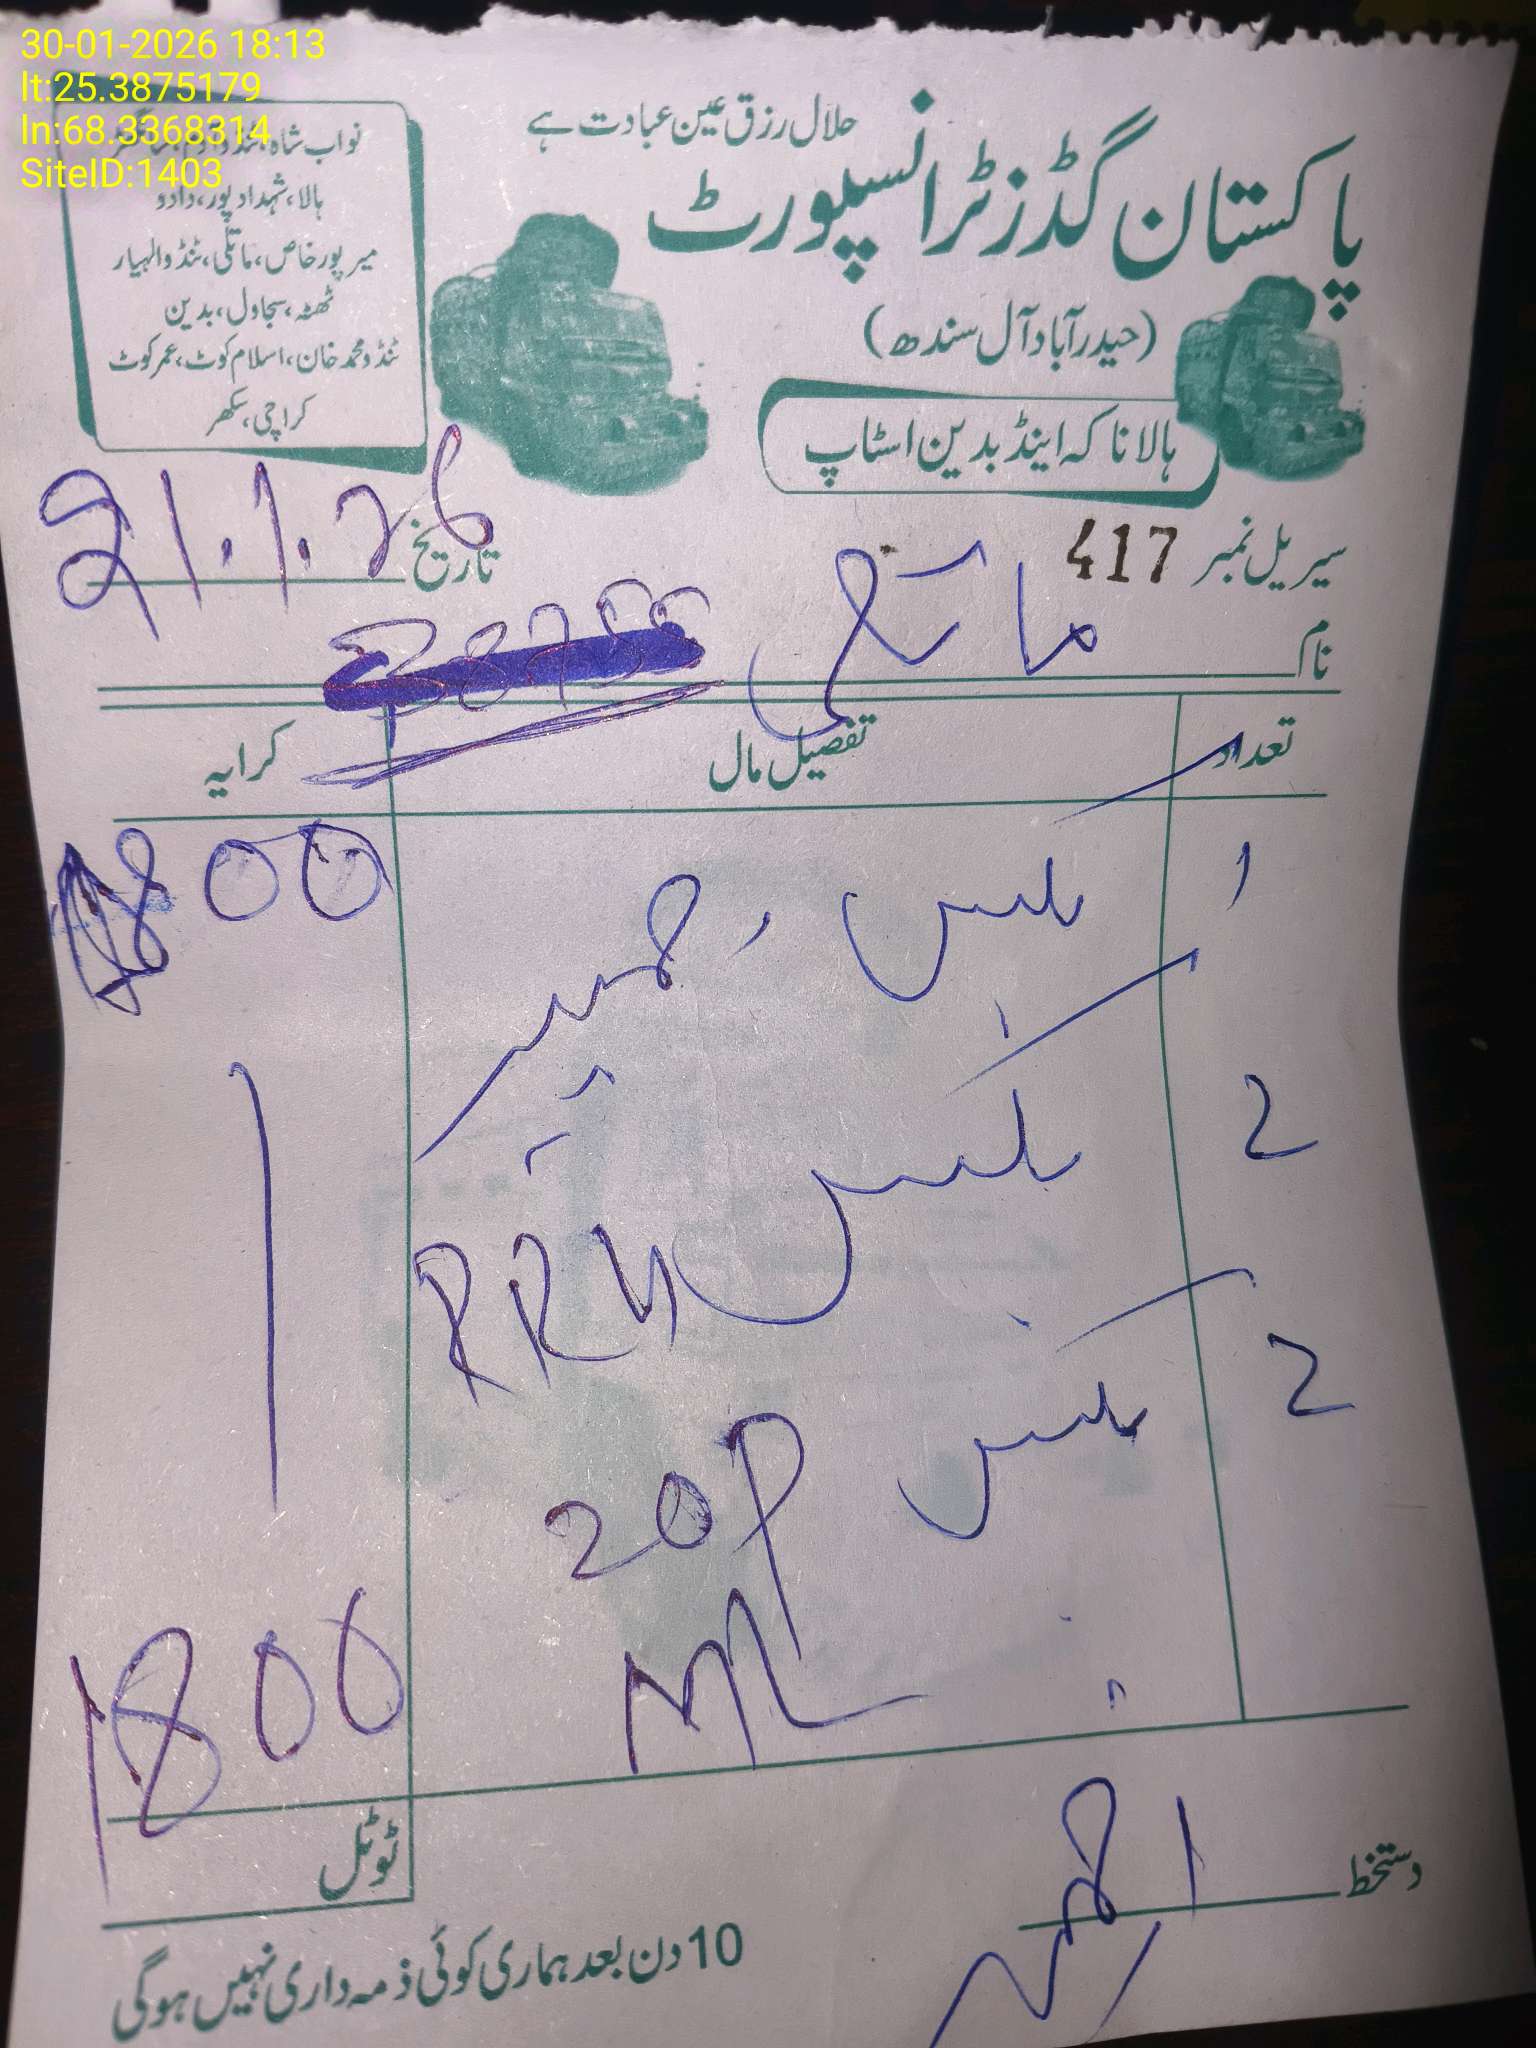 30-01-2026 18:13
lt:25.3875179
ln:68.3368314
SiteID:1403
حلال رزق عین عبادت ہے
پاکستان گڈز ٹرانسپورٹ
(حیدرآباد آل سندھ)
ہالا ناکہ اینڈ بدین اسٹاپ
نواب شاہ،
ہالا، شہداد پور، دادو
میرپورخاص، ماتلی، ٹنڈوالہیار
ٹھٹہ، سجاول، بدین
ٹنڈو محمد خان، اسلام کوٹ، عمرکوٹ
کراچی، سکھر
سیریل نمبر 417
تاریخ 21.1.26
نام ماتلی
تعداد تفصیل مال کرایہ
1 بکس 1800
2 بکس RRU
2 بکس 20P
ML
ٹوٹل 1800
دستخط
10 دن بعد ہماری کوئی ذمہ داری نہیں ہوگی